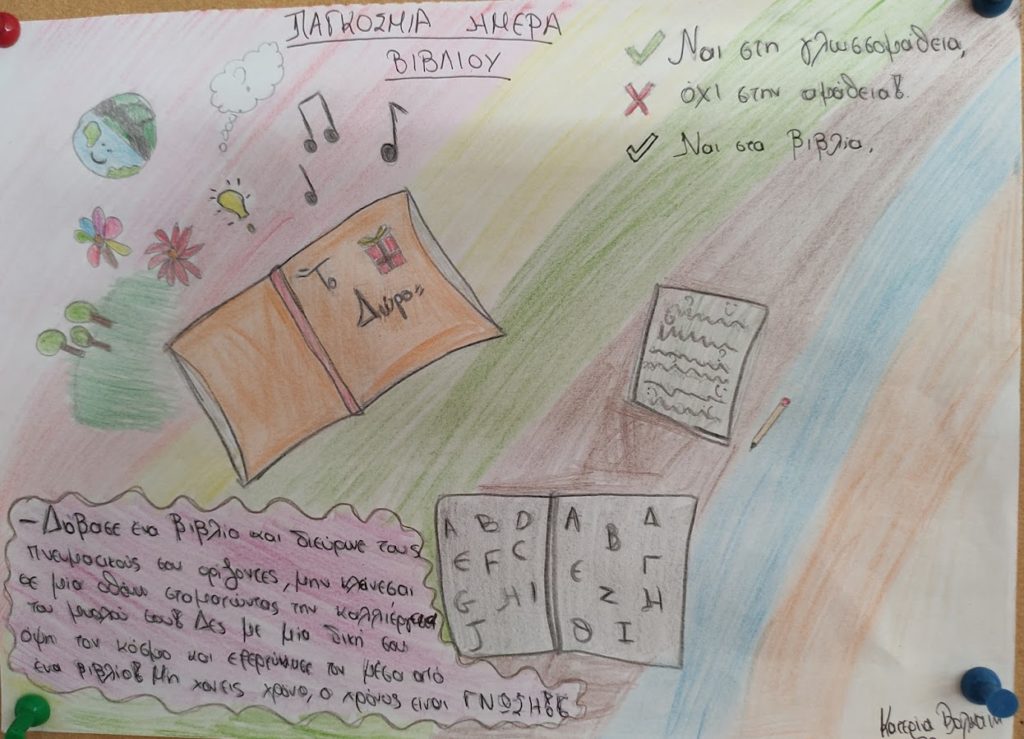 ΠΑΓΚΟΣΜΙΑ ΗΜΕΡΑ
ΒΙΒΛΙΟΥ
Ναι στη γλωσσομάθεια,
όχι στην αμάθεια!!
Ναι στα βιβλία.
"Το
Δώρο"
A B D
E F C
G H I
J
Α Β Δ
Ε Γ
Ζ Η
Θ Ι
-Διάβασε ένα βιβλίο και διεύρυνε τους
πνευματικούς σου ορίζοντες, μην κλάνεσαι
σε μια οθόνη σταματώντας την καλλιέργεια
του μυαλού σου!! Δες με μια δική σου
όψη τον κόσμο και εξερεύνησε τον μέσα από
ένα βιβλίο!! Μη χάνεις χρόνο, ο χρόνος είναι ΓΝΩΣΗ!!
Κατερία